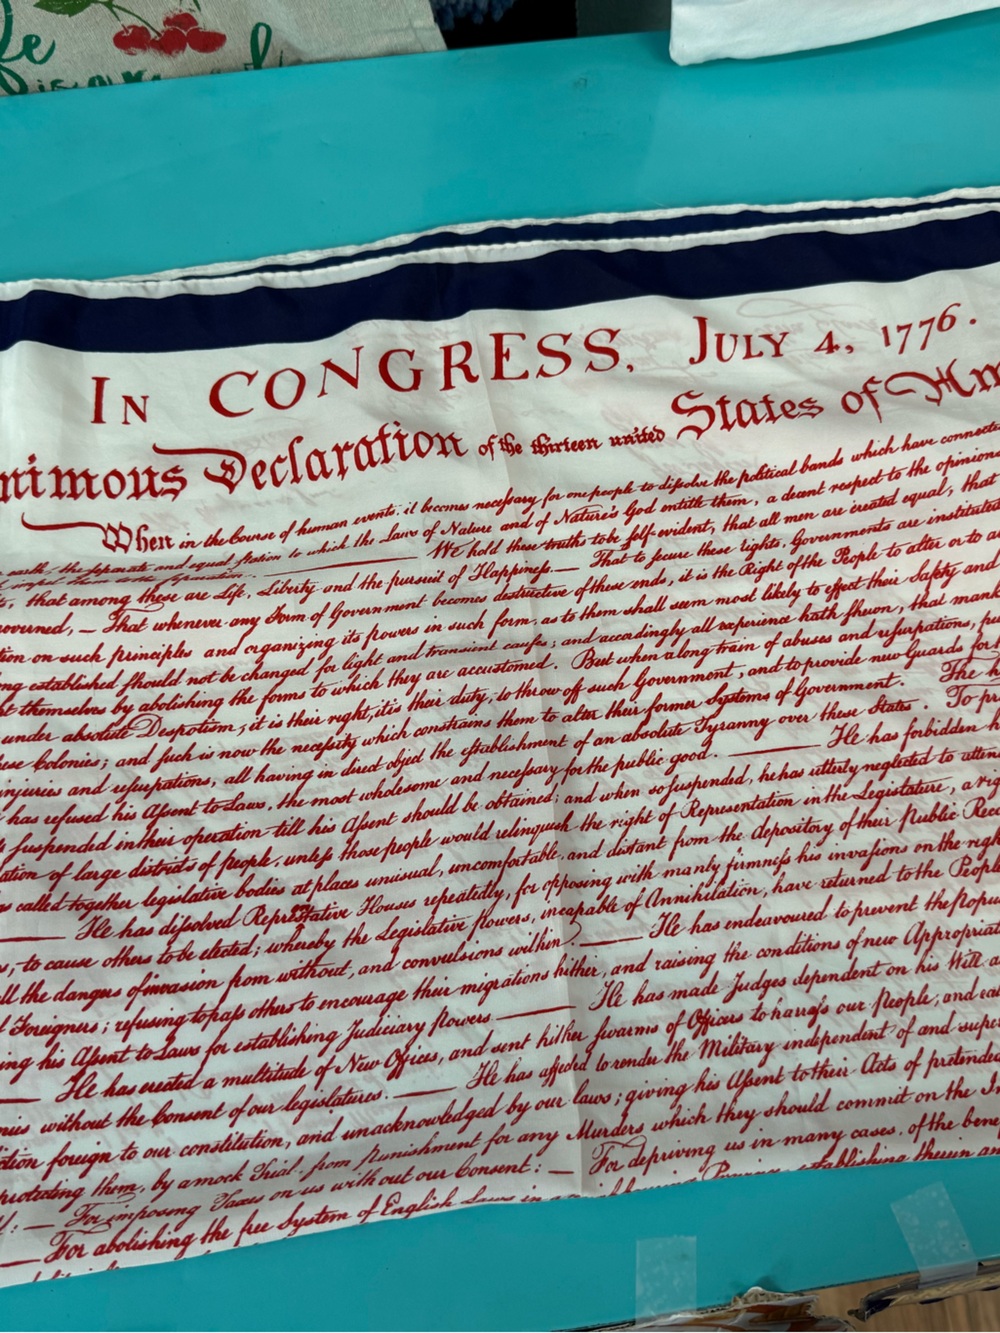 is
In CONGRESS, July 4, 1776.
nimous Declaration of the thirteen united States of Am
When in the Course of human events, it becomes necessary for one people to dissolve the political bands which have connecte
earth, the separate and equal station to which the Laws of Nature and of Nature's God entitle them, a decent respect to the opinions
impel them to the separation. We hold these truths to be self-evident, that all men are created equal, that
, that among these are Life, Liberty and the pursuit of Happiness. — That to secure these rights, Governments are instituted
overned, — That whenever any Form of Government becomes destructive of these ends, it is the Right of the People to alter or to a
tion on such principles and organizing its powers in such form, as to them shall seem most likely to effect their Safety and
ng established should not be changed for light and transient causes; and accordingly all experience hath shewn, that mank
ht themselves by abolishing the forms to which they are accustomed. But when a long train of abuses and usurpations, pu
under absolute Despotism, it is their right, it is their duty, to throw off such Government, and to provide new Guards for
ese Colonies; and such is now the necessity which constrains them to alter their former Systems of Government. The h
injuries and usurpations, all having in direct object the establishment of an absolute Tyranny over these States. To pr
has refused his Assent to Laws, the most wholesome and necessary for the public good. — He has forbidden h
s suspended in their operation till his Assent should be obtained; and when so suspended, he has utterly neglected to atten
ation of large districts of people, unless those people would relinquish the right of Representation in the Legislature, a rig
s called together legislative bodies at places unusual, uncomfortable, and distant from the depository of their Public Rec
— He has dissolved Representative Houses repeatedly, for opposing with manly firmness his invasions on the righ
s, to cause others to be elected; whereby the Legislative powers, incapable of Annihilation, have returned to the Peopl
ll the dangers of invasion from without, and convulsions within. — He has endeavoured to prevent the popu
f Foreigners; refusing to pass others to encourage their migrations hither, and raising the conditions of new Appropriat
ing his Assent to Laws for establishing Judiciary powers. — He has made Judges dependent on his Will a
— He has erected a multitude of New Offices, and sent hither swarms of Officers to harass our People, and ea
mies without the Consent of our legislatures. — He has affected to render the Military independent of and supe
ction foreign to our constitution, and unacknowledged by our laws; giving his Assent to their Acts of pretended
protecting them, by a mock Trial, from punishment for any Murders which they should commit on the In
: — For imposing Taxes on us without our Consent: — For depriving us in many cases, of the bene
— For abolishing the free System of English Laws in a neighbouring Province, establishing therein an